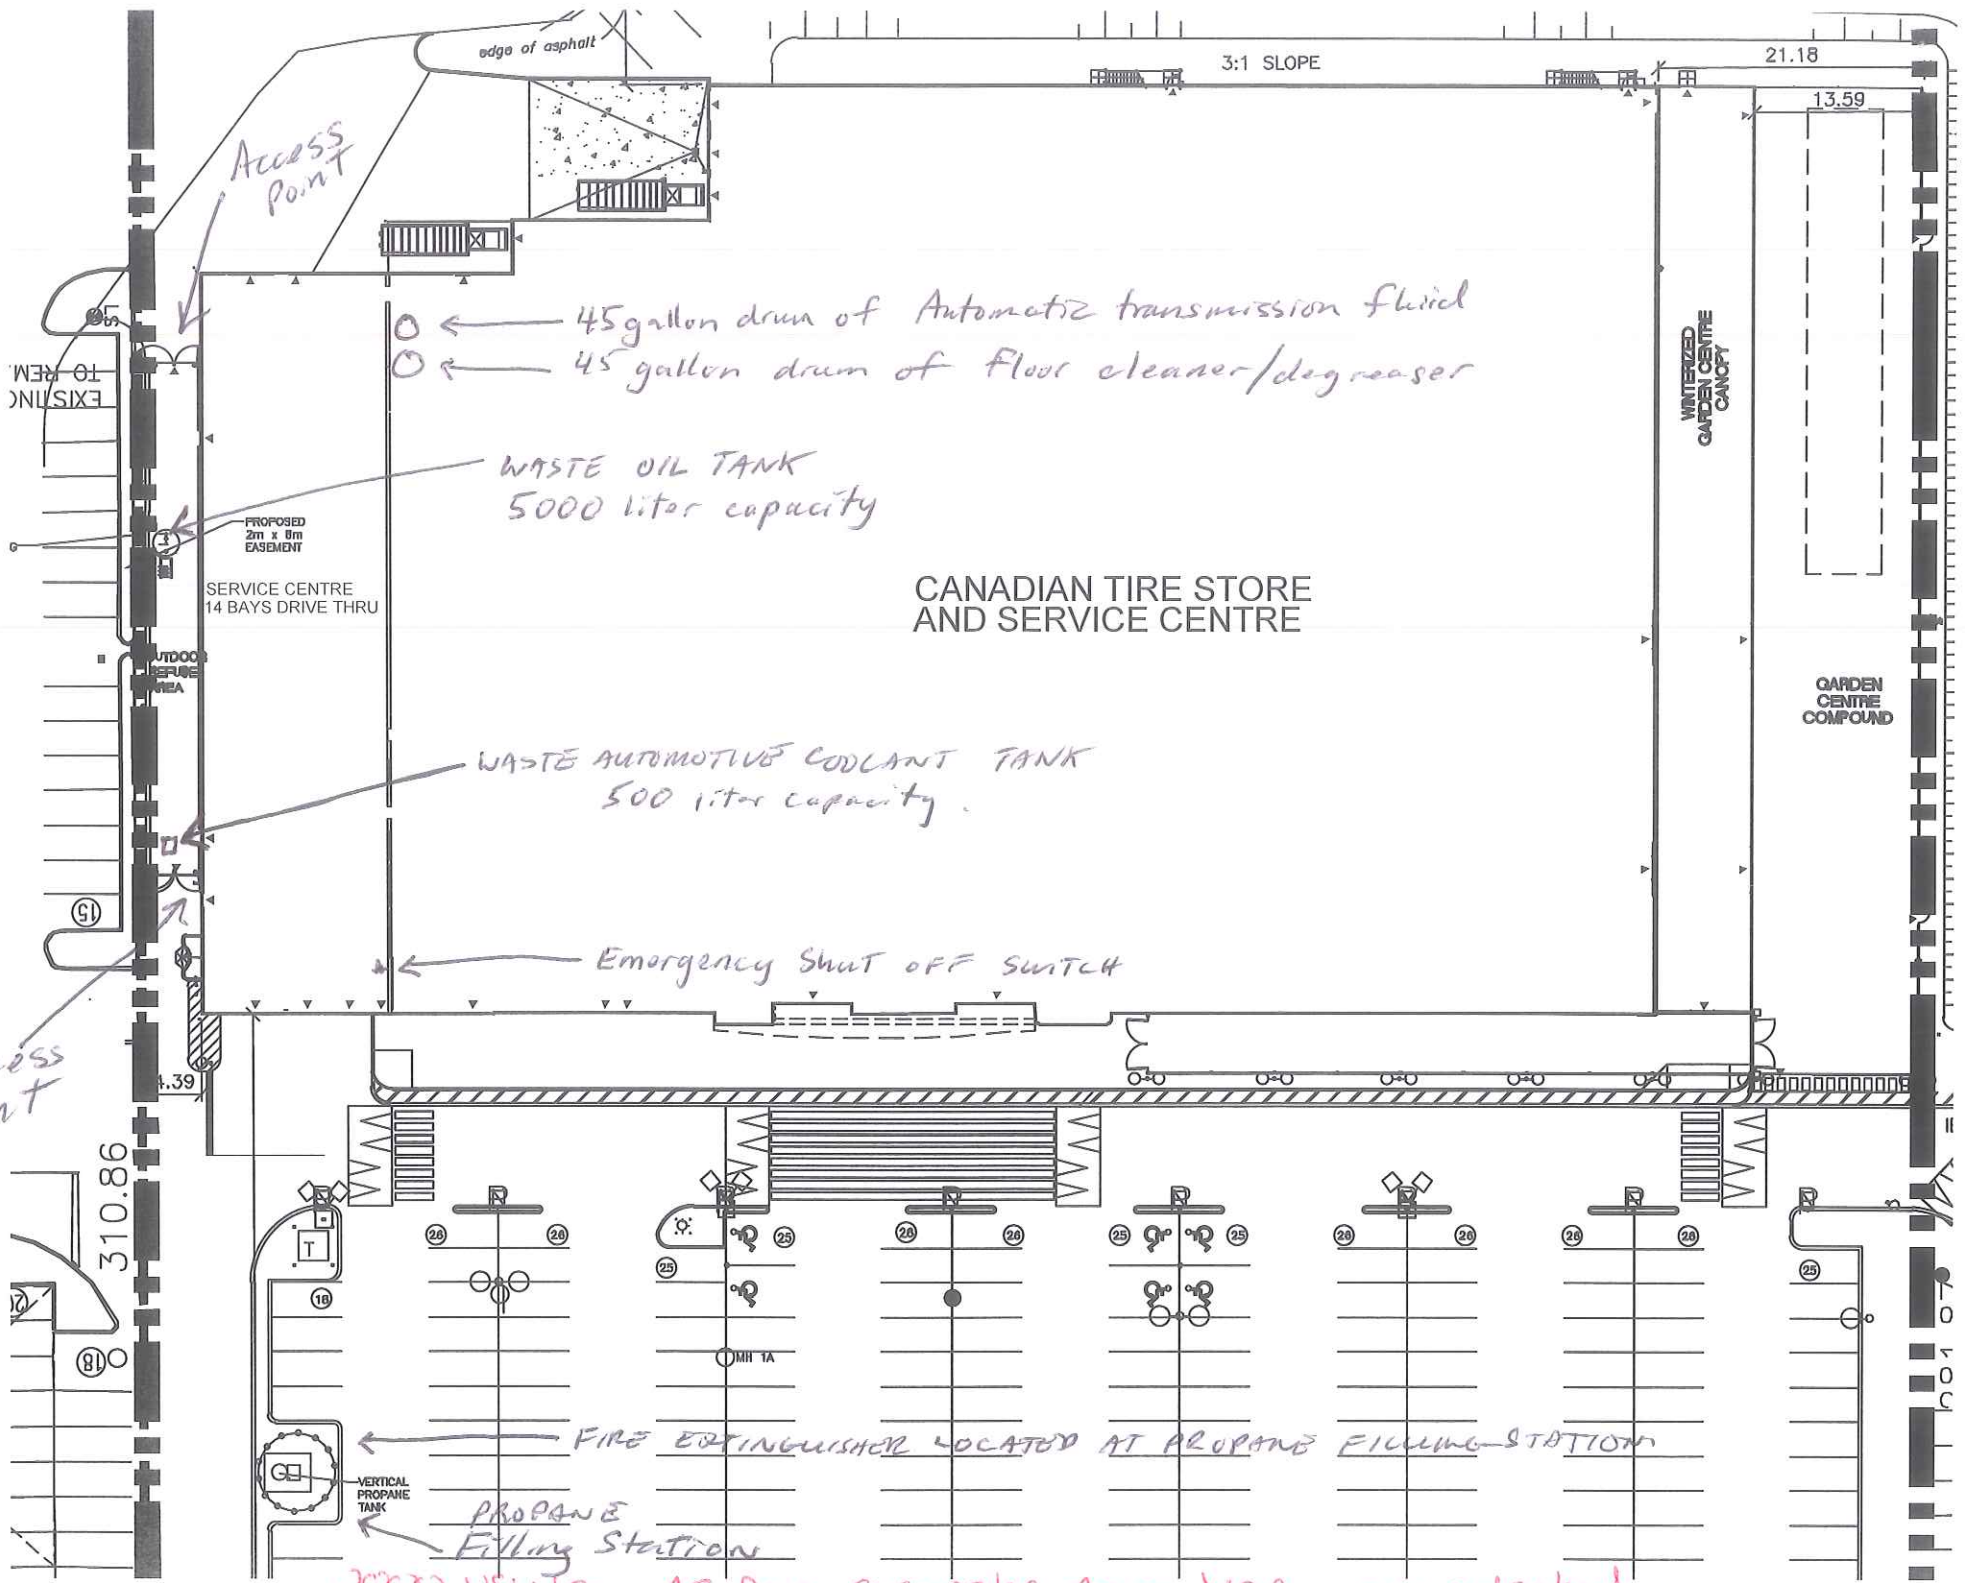 edge of asphalt
3:1 SLOPE
21.18
13.59
Access
Point
45 gallon drum of Automatic transmission fluid
45 gallon drum of floor cleaner/degreaser
TO REM
EXISTING
WINTERIZED
GARDEN CENTRE
CANOPY
WASTE OIL TANK
5000 liter capacity
PROPOSED
2m x 8m
EASEMENT
SERVICE CENTRE
14 BAYS DRIVE THRU
CANADIAN TIRE STORE
AND SERVICE CENTRE
UTDOOR
REFUSE
AREA
GARDEN
CENTRE
COMPOUND
WASTE AUTOMOTIVE COOLANT TANK
500 liter capacity.
15
Emergency Shut OFF SWITCH
ess
nt
4.39
310.86
T
26 26 25 26 26 25 25 26 26 26 26
25 25
16
18
MH 1A
FIRE EXTINGUISHER LOCATED AT PROPANE FILLING STATION
VERTICAL
PROPANE
TANK
PROPANE
Filling Station